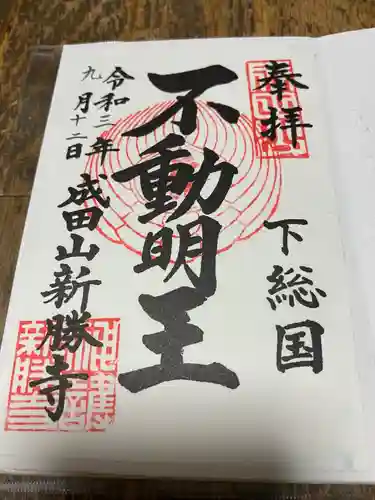 奉拝
下総国
不動明王
令和三年
九月十二日
成田山新勝寺